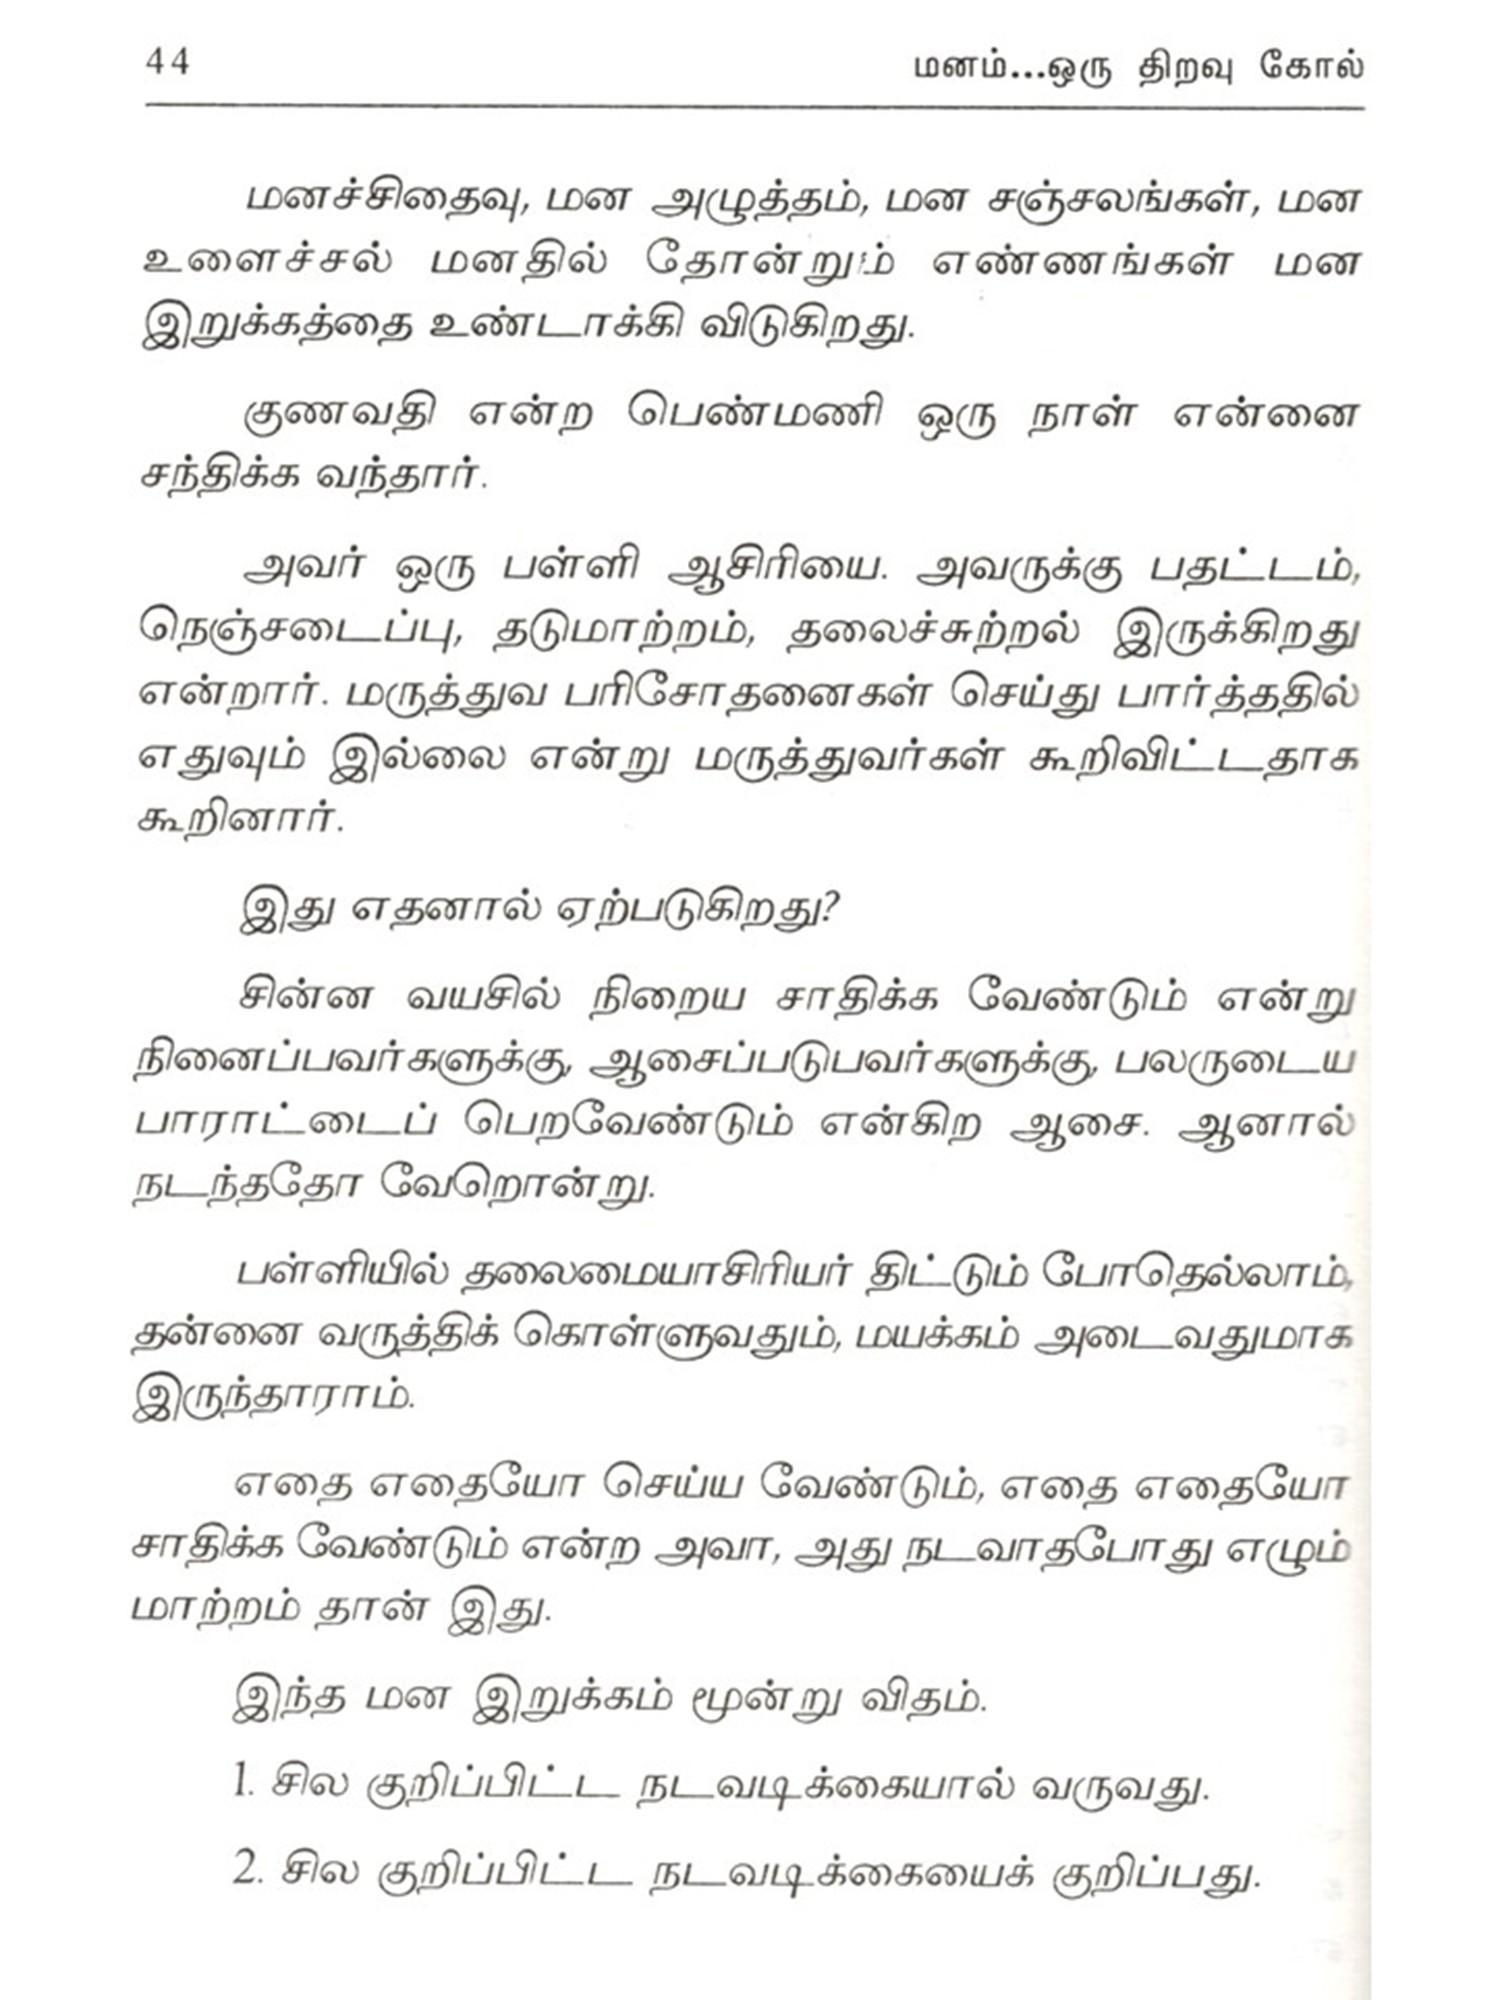 44 மனம்...ஒரு திறவு கோல்
மனச்சிதைவு, மன அழுத்தம், மன சஞ்சலங்கள், மன
உளைச்சல் மனதில் தோன்றும் எண்ணங்கள் மன
இறுக்கத்தை உண்டாக்கி விடுகிறது.
குணவதி என்ற பெண்மணி ஒரு நாள் என்னை
சந்திக்க வந்தார்.
அவர் ஒரு பள்ளி ஆசிரியை. அவருக்கு பதட்டம்,
நெஞ்சடைப்பு, தடுமாற்றம், தலைச்சுற்றல் இருக்கிறது
என்றார். மருத்துவ பரிசோதனைகள் செய்து பார்த்ததில்
எதுவும் இல்லை என்று மருத்துவர்கள் கூறிவிட்டதாக
கூறினார்.
இது எதனால் ஏற்படுகிறது?
சின்ன வயசில் நிறைய சாதிக்க வேண்டும் என்று
நினைப்பவர்களுக்கு, ஆசைப்படுபவர்களுக்கு, பலருடைய
பாராட்டைப் பெறவேண்டும் என்கிற ஆசை. ஆனால்
நடந்ததோ வேறொன்று.
பள்ளியில் தலைமையாசிரியர் திட்டும் போதெல்லாம்,
தன்னை வருத்திக் கொள்ளுவதும், மயக்கம் அடைவதுமாக
இருந்தாராம்.
எதை எதையோ செய்ய வேண்டும், எதை எதையோ
சாதிக்க வேண்டும் என்ற அவா, அது நடவாதபோது எழும்
மாற்றம் தான் இது.
இந்த மன இறுக்கம் மூன்று விதம்.
1. சில குறிப்பிட்ட நடவடிக்கையால் வருவது.
2. சில குறிப்பிட்ட நடவடிக்கையைக் குறிப்பது.